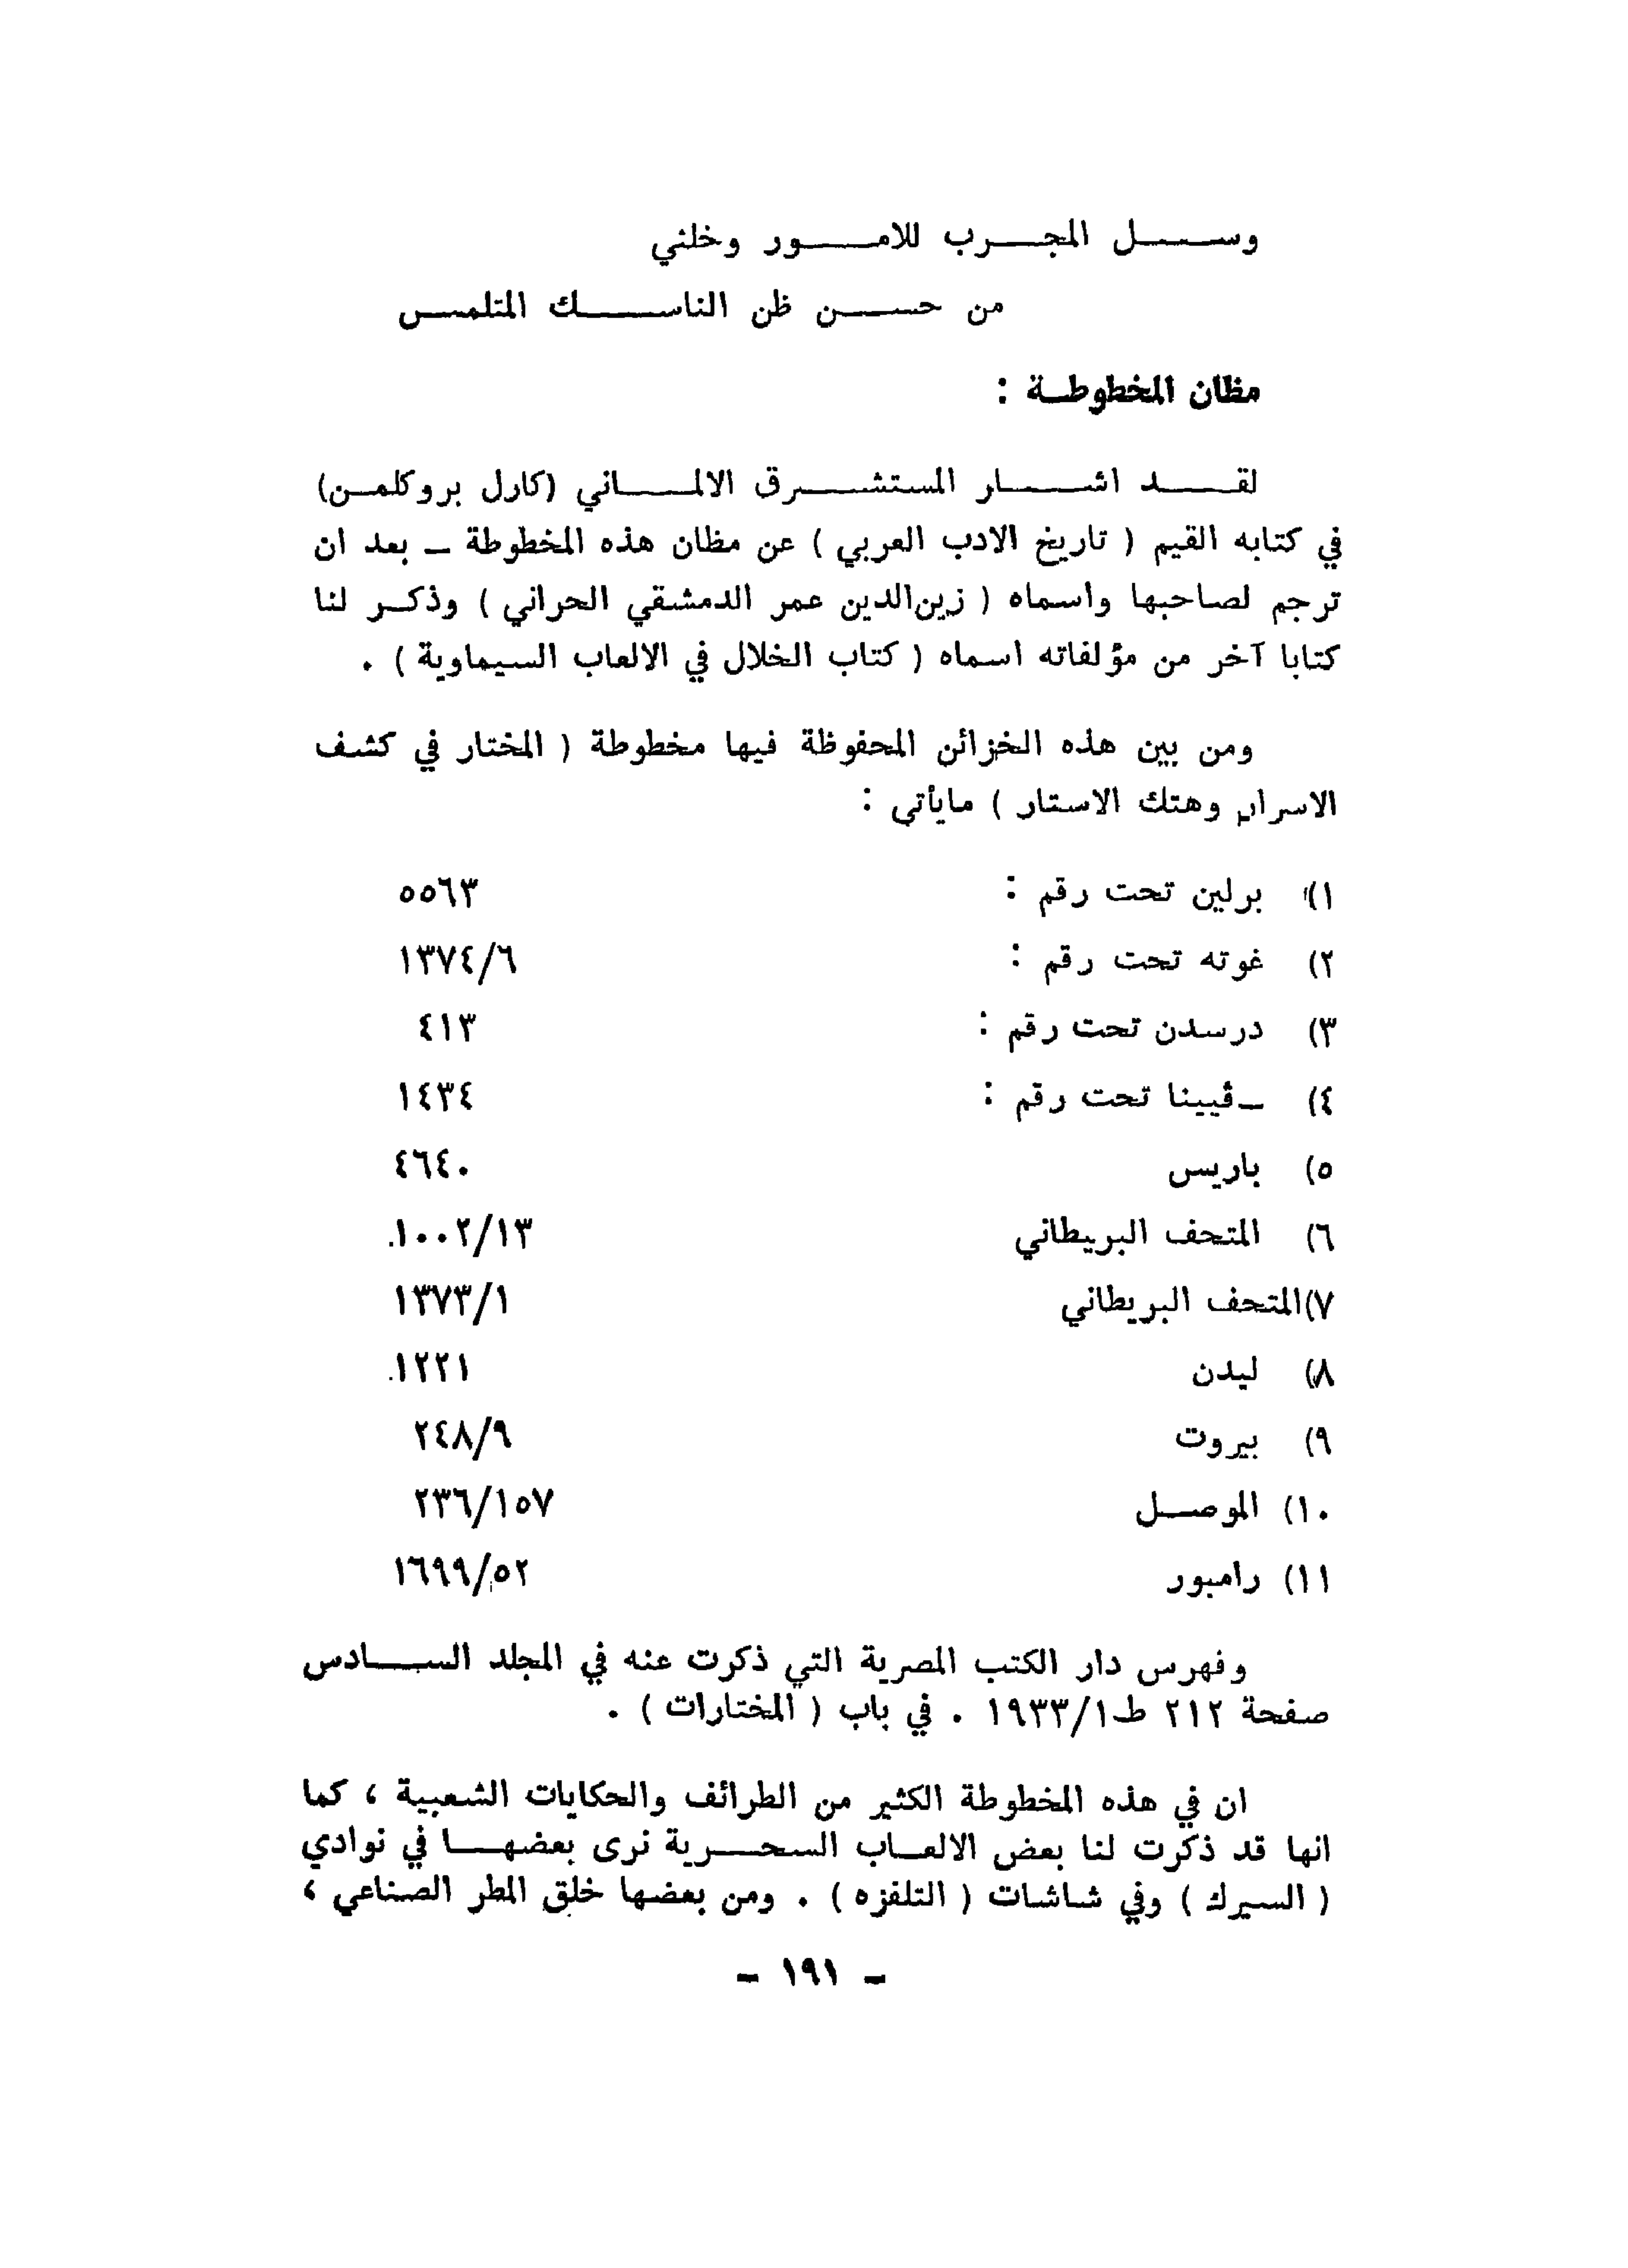 وسل المجرب للامور وخلني
من حسن ظن الناسك المتلمس
مظان المخطوطة :
لقد اشار المستشرق الالماني (كارل بروكلمن)
في كتابه القيم ( تاريخ الادب العربي ) عن مظان هذه المخطوطة – بعد ان
ترجم لصاحبها واسماه ( زين‌الدين عمر الدمشقي الحراني ) وذكر لنا
كتابا آخر من مؤلفاته اسماه ( كتاب الخلال في الالعاب السيماوية ) .
ومن بين هذه الخزائن المحفوظة فيها مخطوطة ( المختار في كشف
الاسرار وهتك الاستار ) مايأتي :
١) برلين تحت رقم : ٥٥٦٣
٢) غوته تحت رقم : ١٣٧٤/٦
٣) درسدن تحت رقم : ٤١٣
٤) –ڤيينا تحت رقم : ١٤٣٤
٥) باريس ٤٦٤٠
٦) المتحف البريطاني ١٠٠٢/١٣
٧)المتحف البريطاني ١٣٧٣/١
٨) ليدن ١٢٢١
٩) بيروت ٢٤٨/٩
١٠) الموصل ٢٣٦/١٥٧
١١) رامبور ١٦٩٩/٥٢
وفهرس دار الكتب المصرية التي ذكرت عنه في المجلد السادس
صفحة ٢١٢ ط١/١٩٣٣ . في باب ( المختارات ) .
ان في هذه المخطوطة الكثير من الطرائف والحكايات الشعبية ، كما
انها قد ذكرت لنا بعض الالعاب السحرية نرى بعضها في نوادي
( السيرك ) وفي شاشات ( التلفزه ) . ومن بعضها خلق المطر الصناعي ،
– ١٩١ –